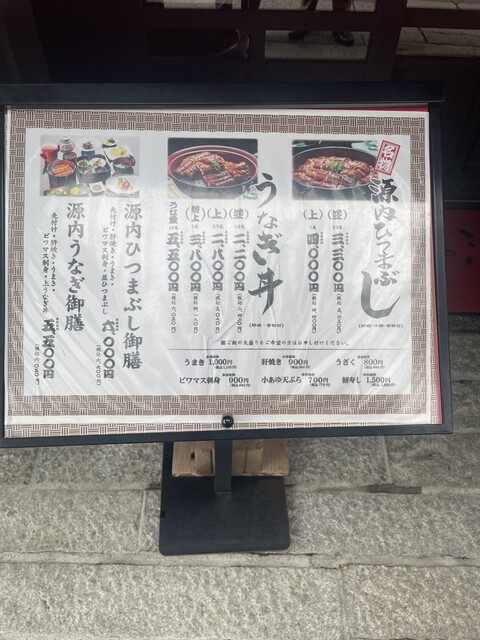 名物
源内ひつまぶし
(並) 三、三〇〇円
(上) 四、〇〇〇円
うなぎ丼
(並) 二、二〇〇円
(上) 二、八〇〇円
(特上) 三、八〇〇円
うな重 五、五〇〇円
源内ひつまぶし御膳
先付け・肝焼き・うまき・
ビワマス刺身・並ひつまぶし
六、〇〇〇円
源内うなぎ御膳
先付け・肝焼き・うまき・
ビワマス刺身・上うなぎ丼
五、五〇〇円
(税込 六、〇五〇円)
御ご飯の大盛りをご希望の方はお申し付けください。
うまき 1,000円
肝焼き 900円
うざく 800円
ビワマス刺身 900円
小あゆ天ぷら 700円
鮒寿し 1,500円